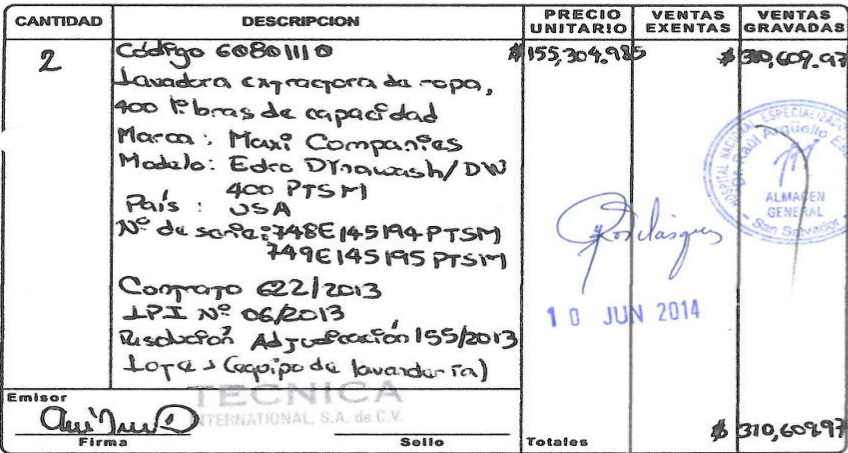 CANTIDAD DESCRIPCION PRECIO UNITARIO VENTAS EXENTAS VENTAS GRAVADAS
2 Código 60801110 $155,304.985 $310,609.97
Lavadora extractora de ropa,
400 libras de capacidad
Marca: Maxi Companies
Modelo: Edro Dynawash/DW
400 PTSM
País: USA
Nº de serie: 748E145194PTSM
749E145195PTSM
Contrato 622/2013
LPI Nº 06/2013
Resolución Adjudicación 155/2013
Lote (equipo de lavandería)
HOSPITAL NACIONAL ESPECIALIZADO
Dr. Raúl Argüello
ALMACEN
GENERAL
San Salvador
10 JUN 2014
TECNICA
INTERNATIONAL, S.A. de C.V.
Emisor
Firma Sello Totales $310,609.97